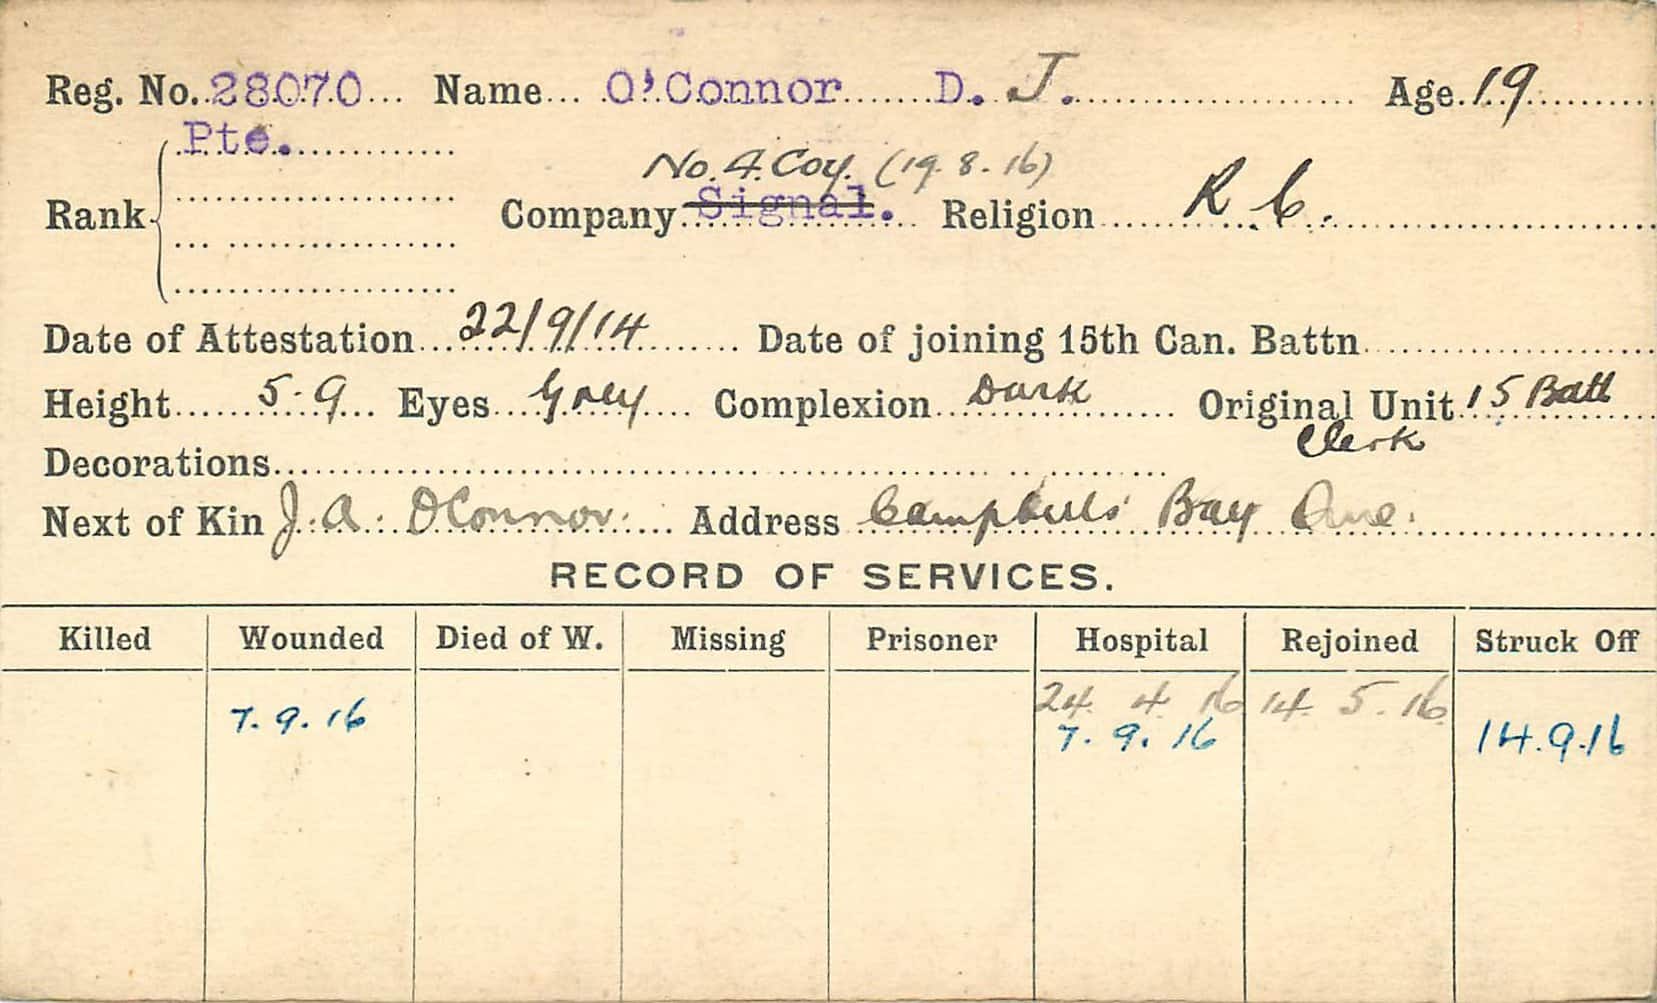 Reg. No. 28070 Name O'Connor D. J. Age 19
Pte.
No. 4. Coy. (19.8.16)
Rank Company Signal. Religion R C.
Date of Attestation 22/9/14 Date of joining 15th Can. Battn
Height 5.9 Eyes Grey Complexion Dark Original Unit 15 Batt
Clerk
Decorations
Next of Kin J. A. O'Connor. Address Campbells Bay Que.
RECORD OF SERVICES.
Killed Wounded Died of W. Missing Prisoner Hospital Rejoined Struck Off
24 4 16 14. 5. 16
7.9.16 7. 9. 16 14.9.16